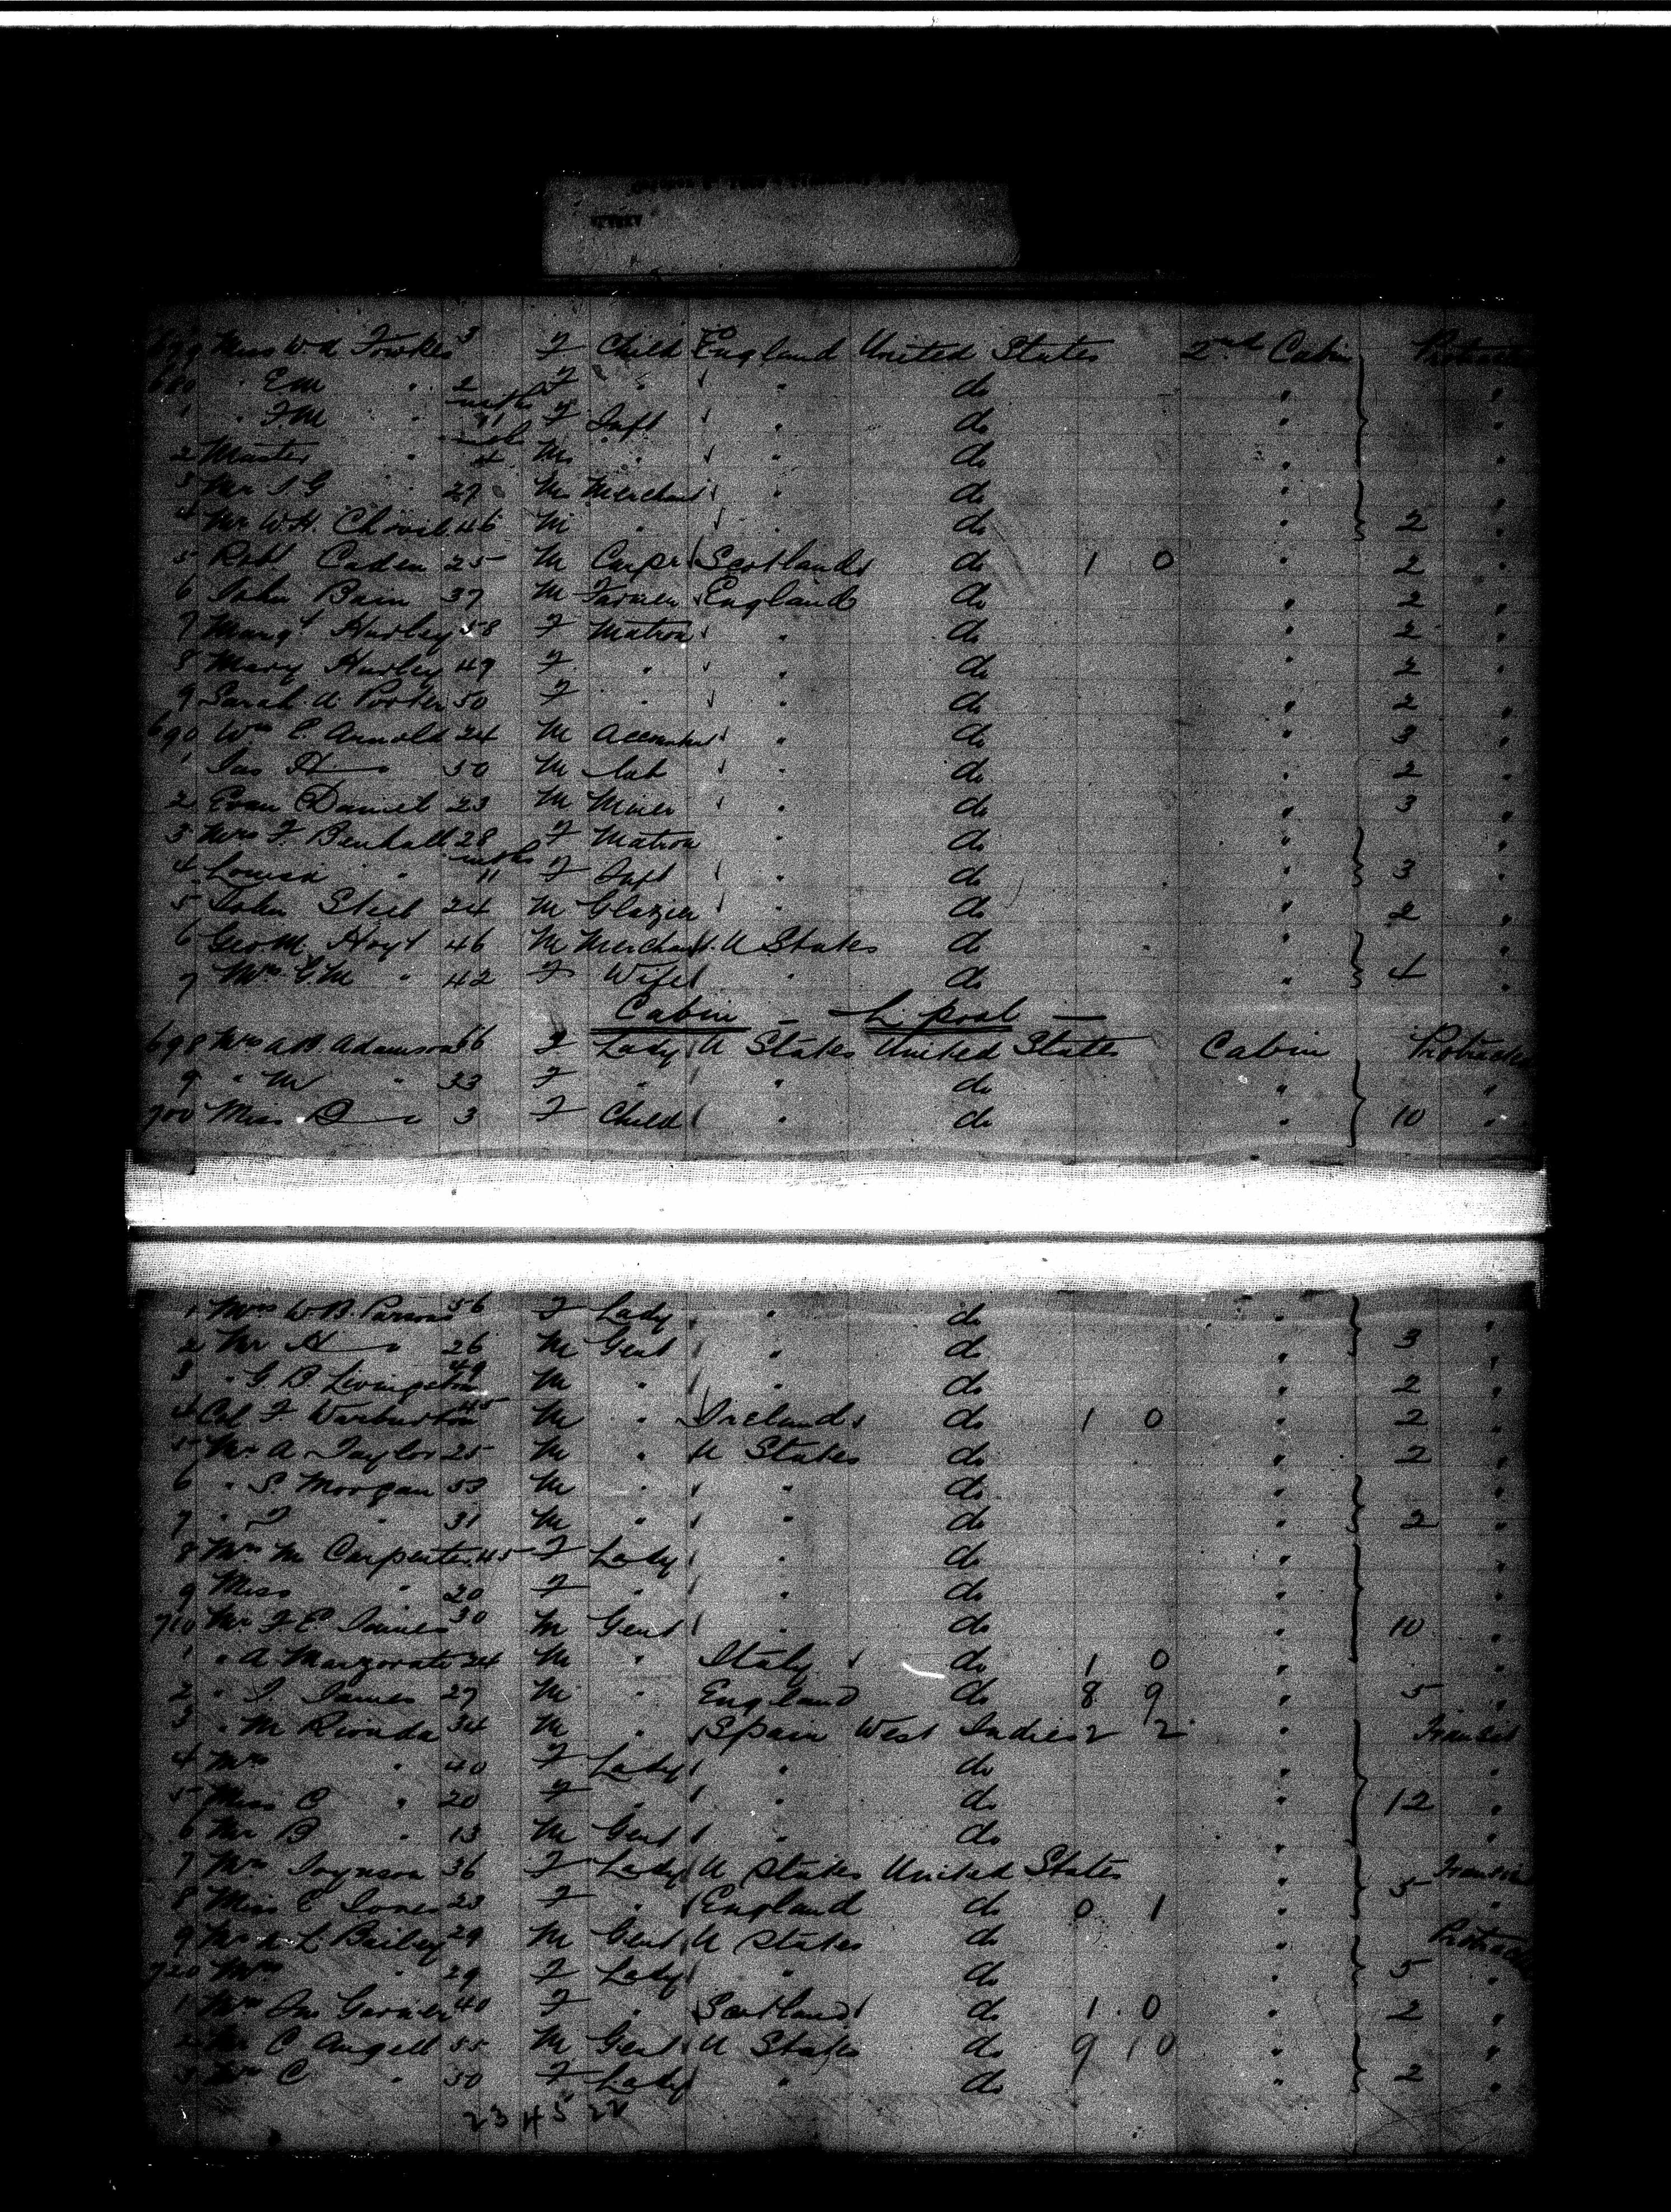 679 Miss W. A Fowkes 3 F Child England United States 2nd Cabin
680 " E M " 2 F " " do "
1 " F. M " mths 11 F Inft " do "
2 Master " mth 4 M " " do "
3 Mr I G " 29 M Merchant " do "
4 Mr W. H. 46 M " " do " 2 "
5 Robt Caden 25 M Carpr Scotland do 1 0 " 2 "
6 John Bain 37 M Farmer England do " 2 "
7 Margt Hurley 58 F Matron " do " 2 "
8 Mary Hurley 49 F " " do " 2 "
9 Sarah A Porter 50 F " " do " 2 "
690 Wm C. Arnold 24 M Accountant " do " 3 "
1 Jas H 50 M Lab " do " 2 "
2 Evan Daniel 23 M Miner " do " 3 "
3 Mrs F. Benhall 28 F Matron " do "
4 Louisa " mths 11 F Inft " do " 3 "
5 John Steel 24 M Glazier " do " 2 "
6 Geo M. Hoyt 46 M Merchant U States do "
7 Mrs G. M " 42 F Wife " do " 4 "
Cabin - L. pool -
698 Mrs A. B. Adamson 66 F Lady U States United States Cabin
9 " M " 33 F " " do "
700 Miss D " 3 F Child " do " 10 "
1 Mrs W. B. Parsons 56 F Lady " do "
2 Mr H " 26 M Gent " do " 3 "
3 " G. B. Livingston 49 M " " do " 2 "
4 Col F. Warburton 45 M " Ireland do 1 0 " 2 "
5 Mr A Taylor 25 M " U States do " 2 "
6 " S. Morgan 53 M " " do "
7 " J " 31 M " " do " 2 "
8 Mrs M Carpenter 45 F Lady " do "
9 Miss " 20 F " " do "
710 Mr F. C. James 30 M Gent " do " 10 "
1 " A. Margorate 24 M " Italy do 1 0 "
2 " J. James 27 M " England do 8 9 " 5 "
3 " M Rionda 34 M " Spain West Indies 2 2 " Transit
4 Mrs " 40 F Lady " do "
5 Miss C " 20 F " " do " 12 "
6 Mr B " 13 M Gent " do "
7 Mrs Joynson 36 F Lady U States United States " Transit
8 Miss E Jones 23 F " England do 0 1 " 5 "
9 Mr A L Bailey 29 M Gent U States do "
720 Mrs " 29 F Lady " do " 5 "
1 Mrs Jas Garner 40 F " Scotland do 1 0 " 2 "
2 Mr C Angell 55 M Gent U States do 9 10 "
3 Mrs C " 50 F Lady " do " 2 "
23 45 22